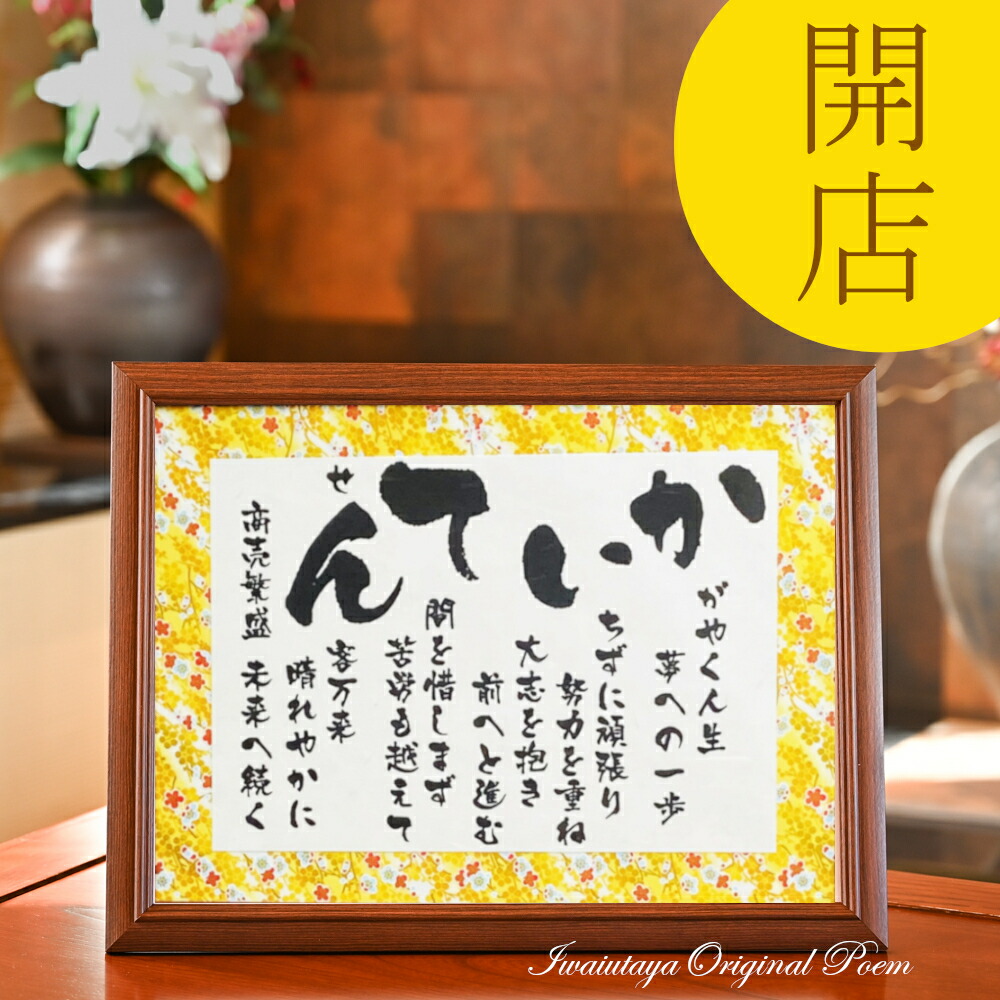 開店
かいてん
がやく人生
夢への一歩
ちずに頑張り
努力を重ね
大志を抱き
前へと進む
間を惜しまず
苦労も越えて
せ
客万来
晴れやかに
商売繁盛
未来へ続く
Iwaiutaya Original Poem